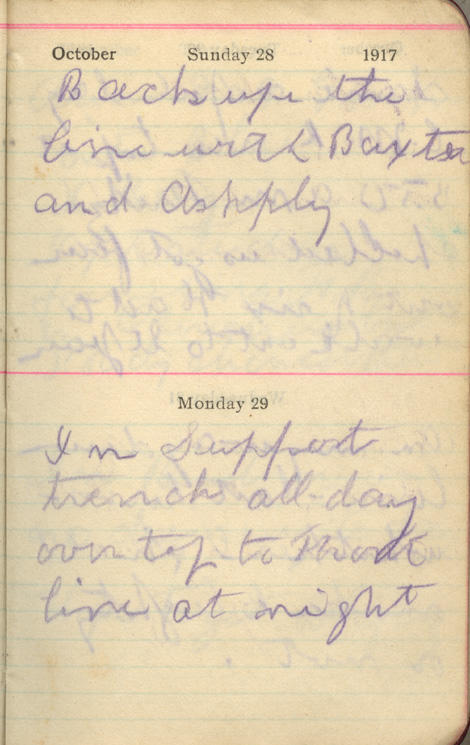 October Sunday 28 1917
Back up the
line with Baxter
and
Monday 29
In Support
trench all day
over top to
line at night